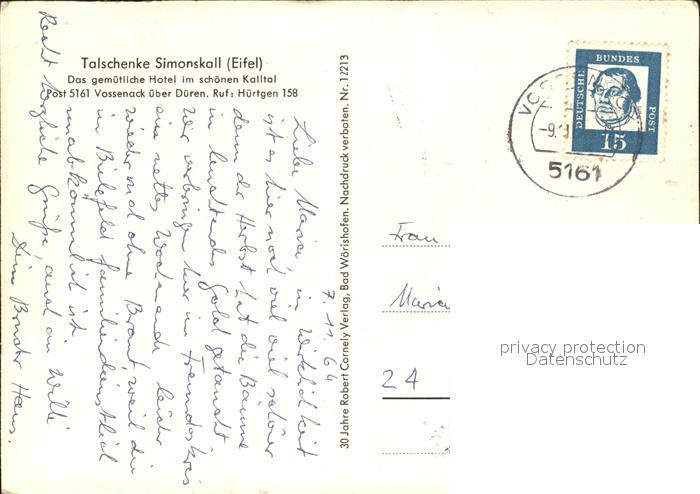 Talschenke Simonskall (Eifel)
Das gemütliche Hotel im schönen Kalltal
Post 5161 Vossenack über Düren. Ruf: Hürtgen 158
7. 11. 64
Liebe Maria, in Wirklichkeit
ist es hier noch viel viel schöner
denn der Herbst hat die Bäume
in leuchtendes Gold getaucht.
Wir verbringen hier im Freundeskreis
ein nettes Wochenende leider
wieder mal ohne Braut, weil die
in Bielefeld familiendienstlich
unabkömmlich ist.
Recht herzliche Grüße auch an Willi
Dein Bruder Hans.
30 Jahre Robert Cornely Verlag, Bad Wörishofen. Nachdruck verboten. Nr. 1/213
DEUTSCHE BUNDES POST
15
5161
Frau
Maria
24
privacy protection
Datenschutz